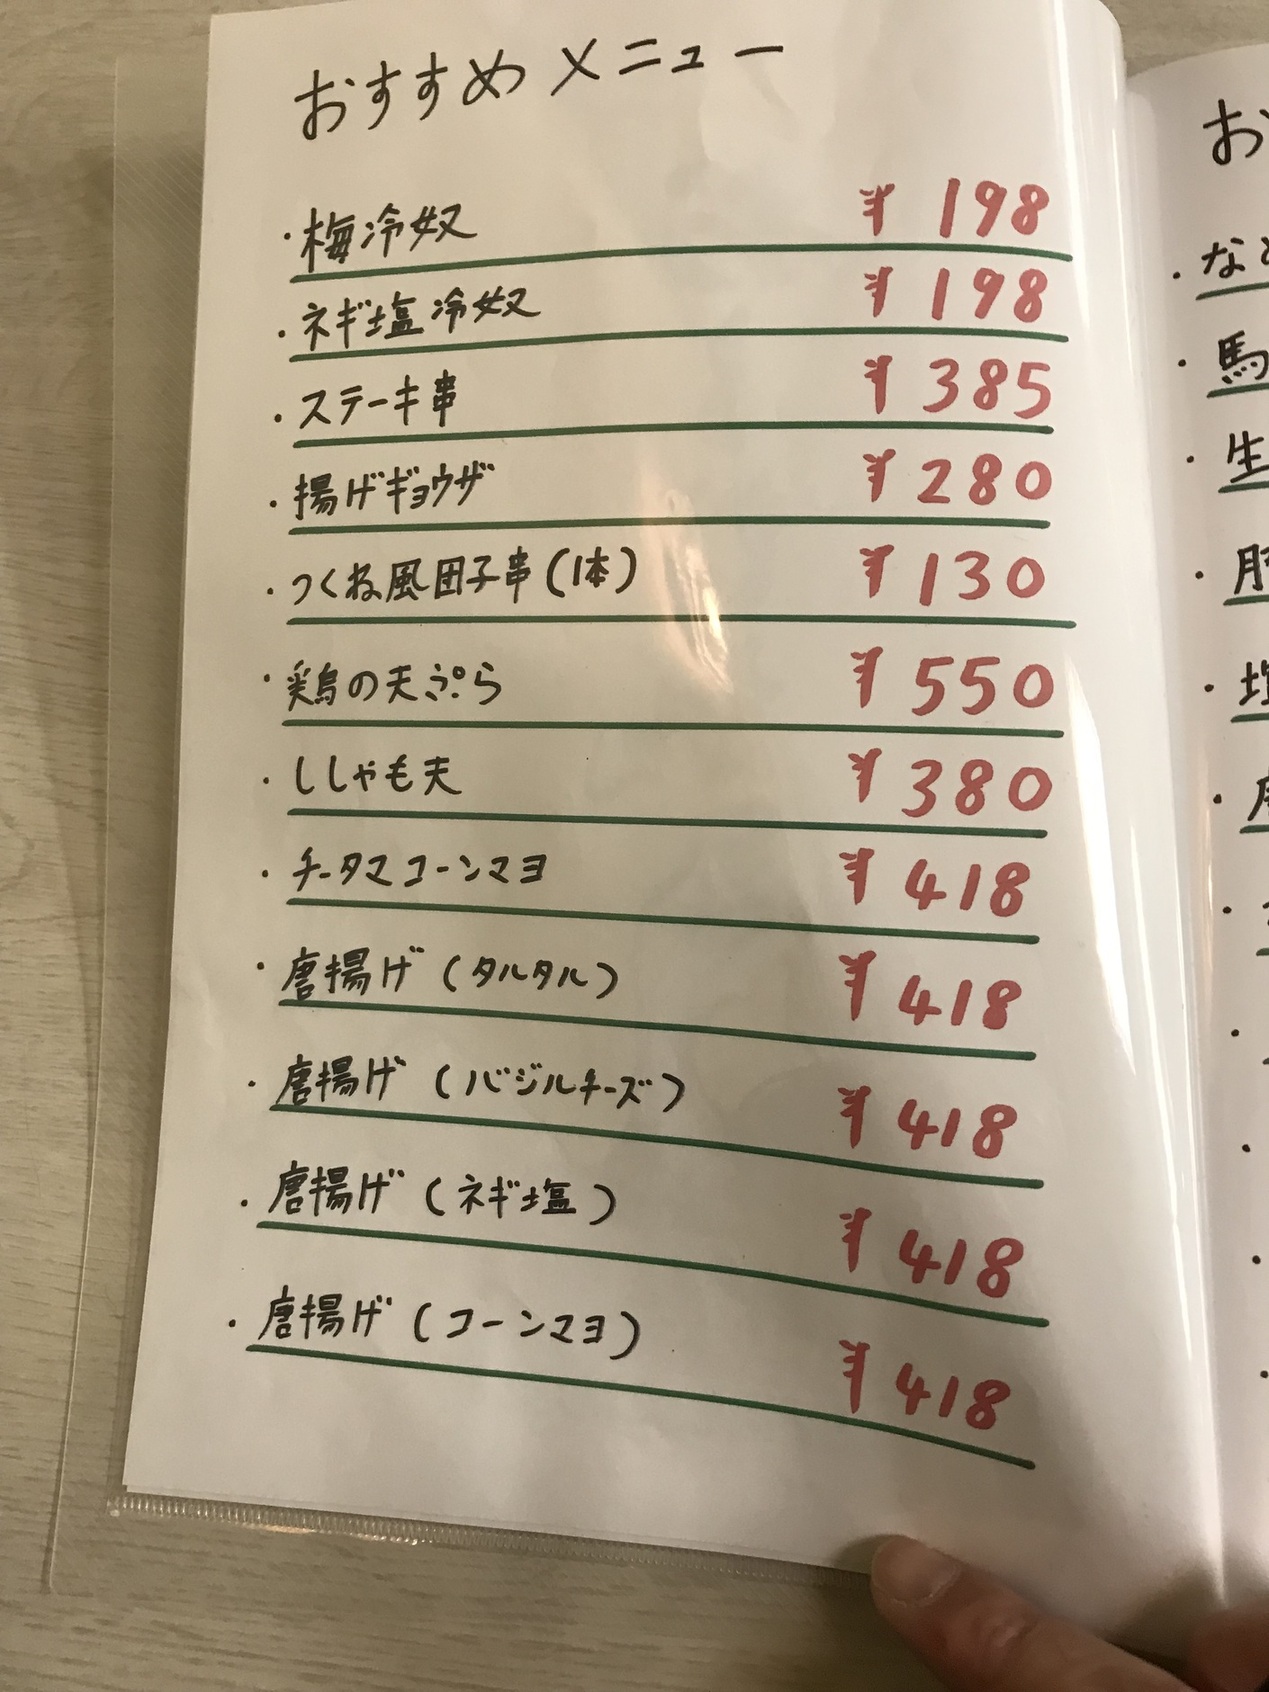 おすすめメニュー
・梅冷奴 ¥198
・ネギ塩冷奴 ¥198
・ステーキ串 ¥385
・揚げギョウザ ¥280
・つくね風団子串(1本) ¥130
・鶏の天ぷら ¥550
・ししゃも天 ¥380
・チータマコーンマヨ ¥418
・唐揚げ(タルタル) ¥418
・唐揚げ(バジルチーズ) ¥418
・唐揚げ(ネギ塩) ¥418
・唐揚げ(コーンマヨ) ¥418
お
・な
・馬
・生